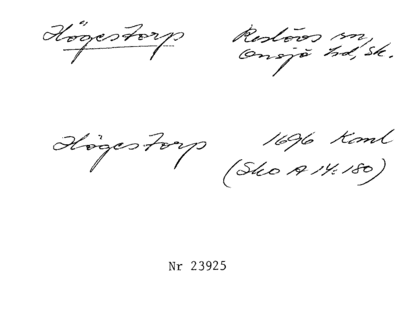 Högestorp Reslövs sn,
Onsjö hd, Sk.
Högestorp 1696 Koml
(Sko A 14:180)
Nr 23925